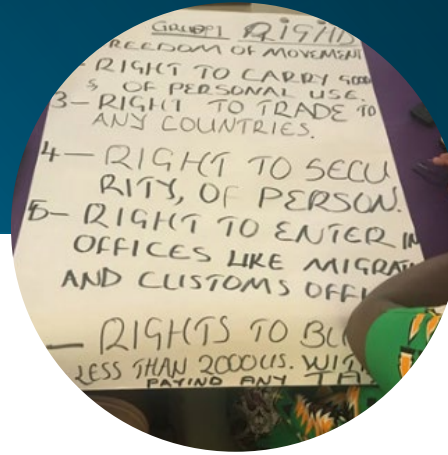 GROUP 1 RIGHTS
FREEDOM OF MOVEMENT
- RIGHT TO CARRY GOODS
& OF PERSONAL USE.
3- RIGHT TO TRADE TO
ANY COUNTRIES.
4- RIGHT TO SECU
RITY, OF PERSON.
5- RIGHT TO ENTER IN
OFFICES LIKE MIGRAT
AND CUSTOMS OFFI
- RIGHTS TO BU
LESS THAN 2000 US. WIT
PAYING ANY TA